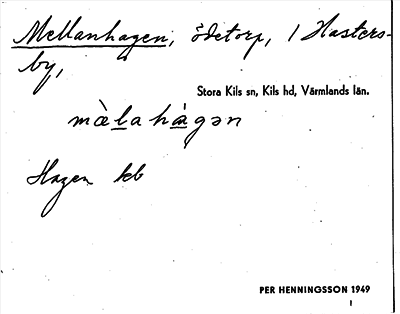 Mellanhagen, ödetorp, / Hasters-
by,
Stora Kils sn, Kils hd, Värmlands län.
mà̀lahàgən
Hagen kb
PER HENNINGSSON 1949